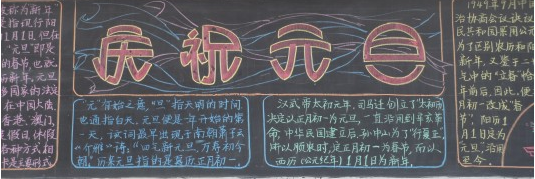 庆祝元旦
称为新年
是指现行阳
1月1日,但在
"元旦"即是
的春节,也就
历新年,元旦
多国家的法定
在中国大陆
香港、澳门
是假日,休假
"元"有始之意,"旦"指天明的时间
也通指白天,元旦便是一年开始的第
一天,该词最早出现于南朝萧子云
《介雅》诗:"四气新元旦,万寿初今
朝",历来元旦指的是夏历正月初一,
汉武帝太初元年,司马迁创立了"太初历
决定以正月初一为元旦,一直沿用到辛亥革
命;中华民国建立后,孙中山为了"行夏正
所以顺农时,定正月初一为春节,而以
西历(公元纪年)1月1日为新年,
1949年9月中国
治协商会议决议
民共和国采用公元
为了区别农历和阳
新年,又鉴于二
气中的"立春"恰
年前后,因此,便
月初一改成"春
节",阳历1
月1日定为
元旦",沿用
至今。